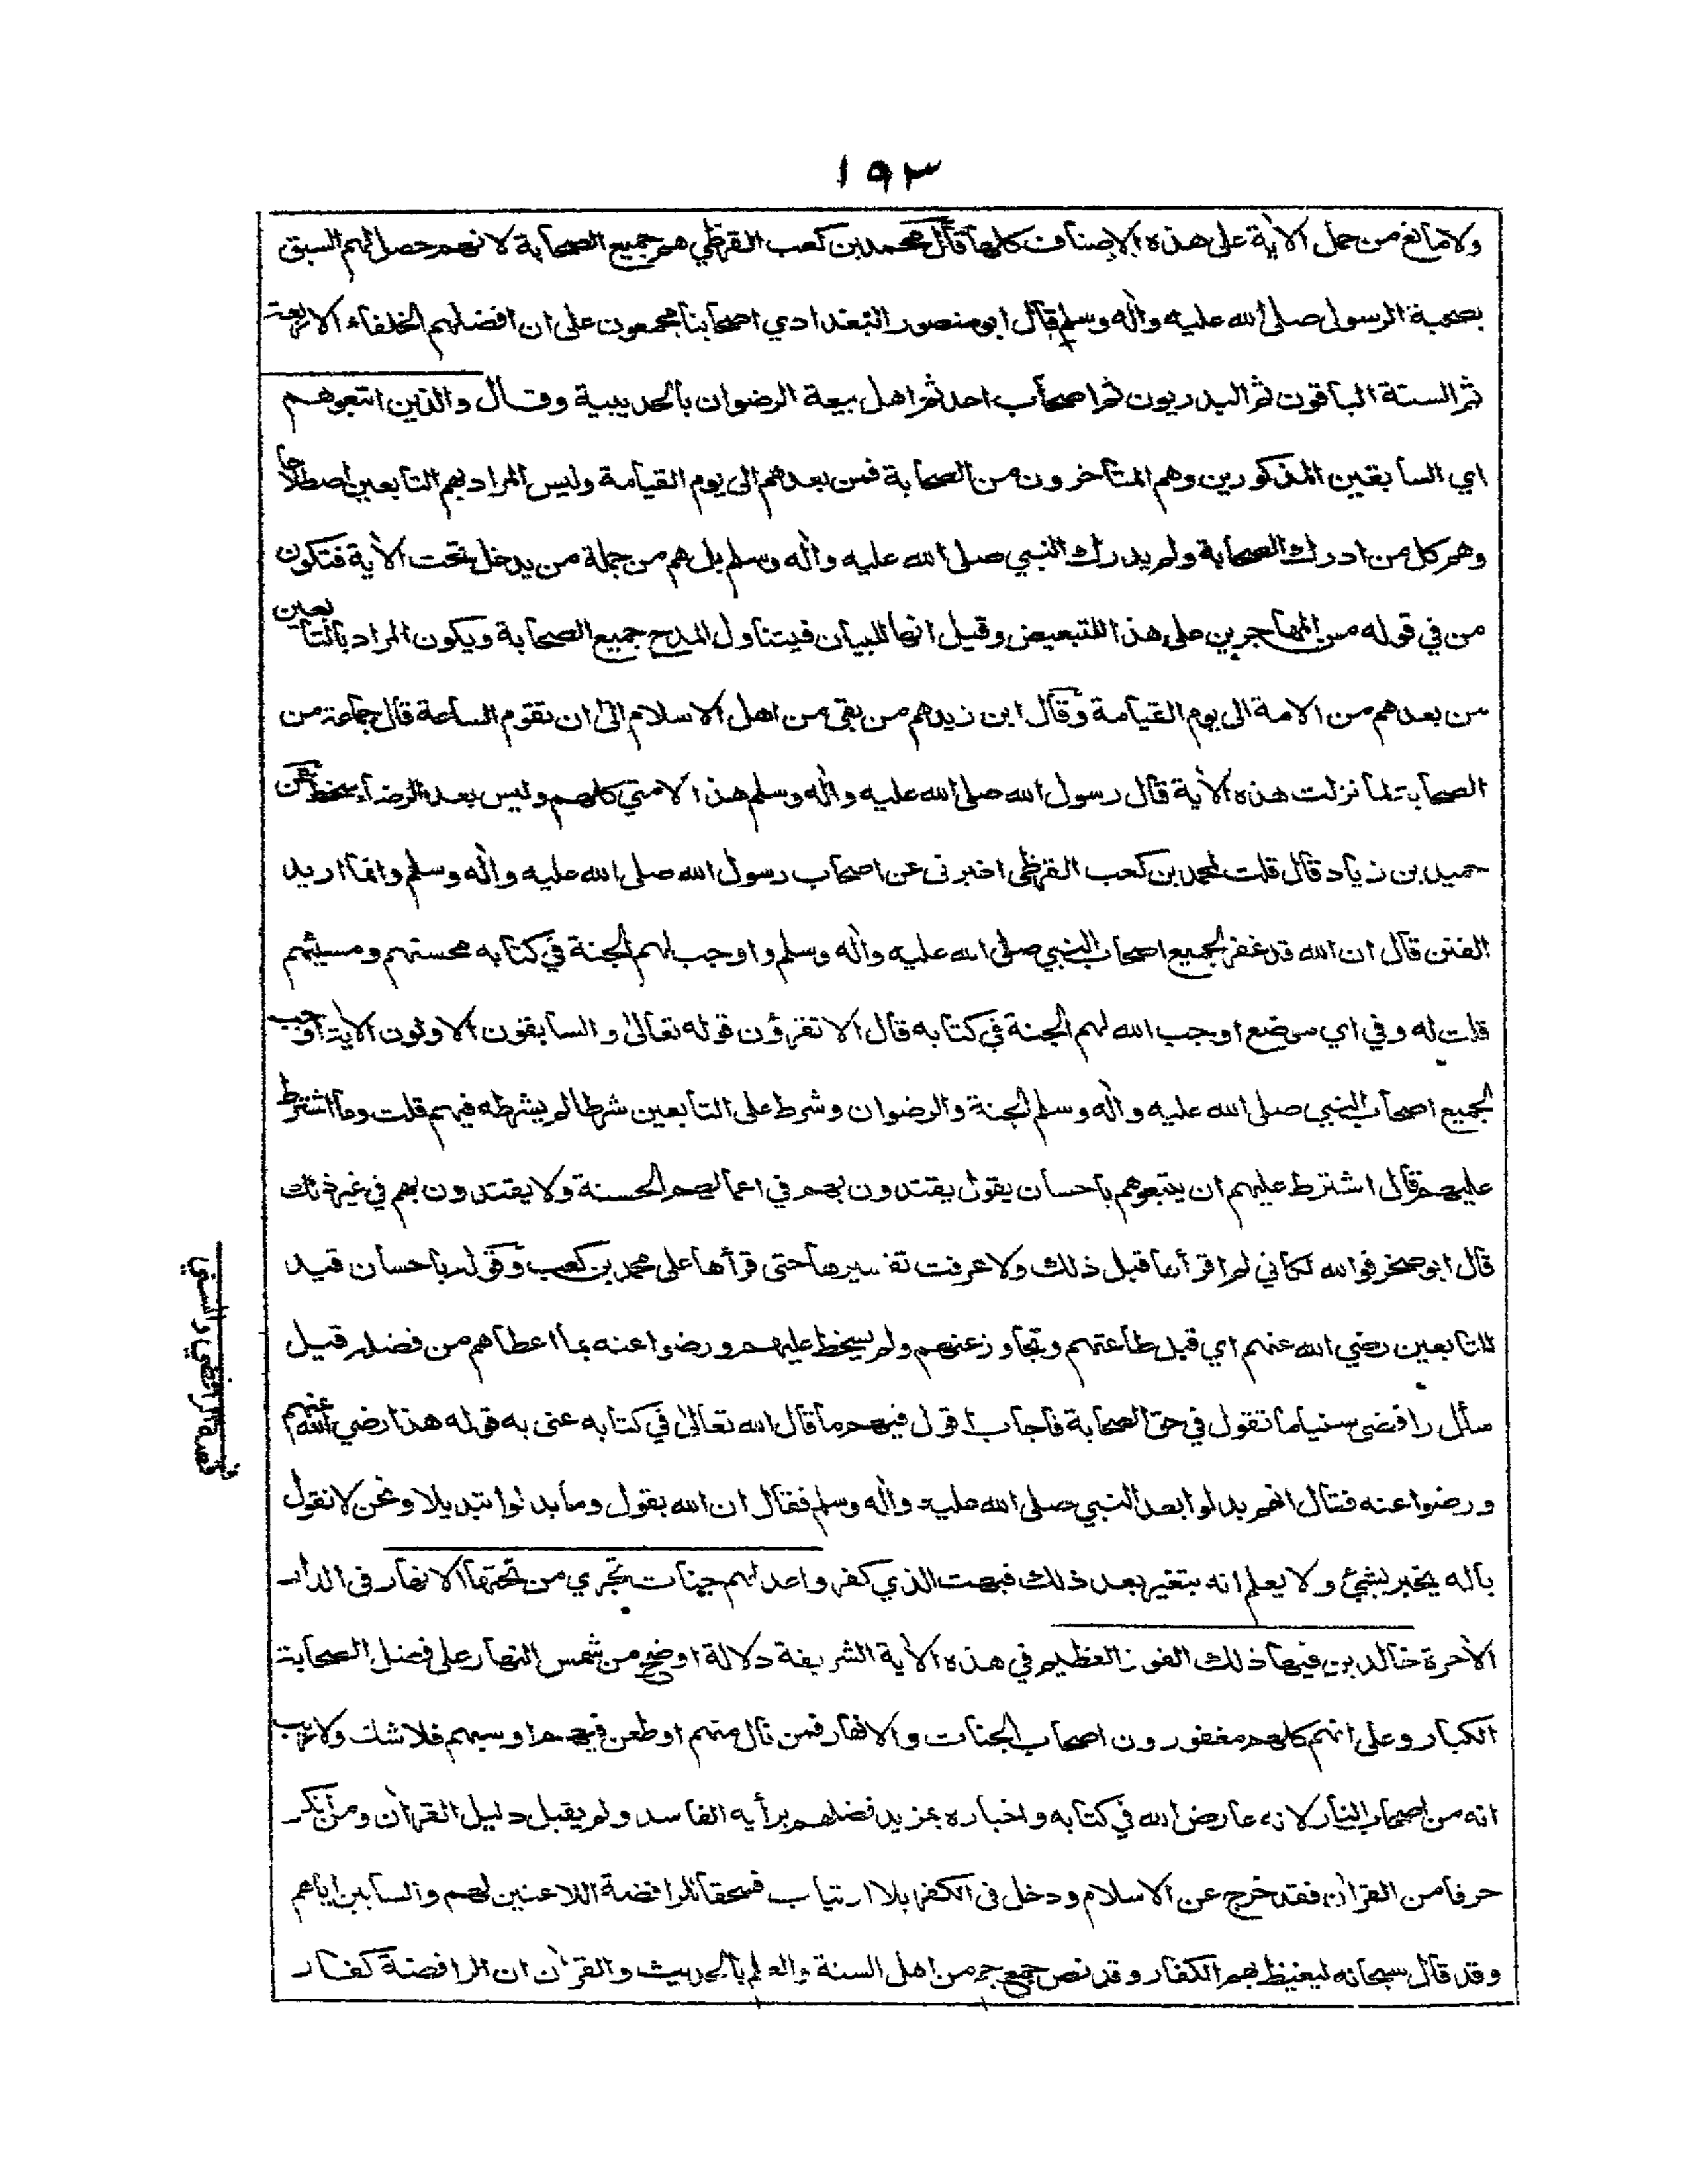 ١٩٣
ولا مانع من حمل الآية على هذه الاصناف كلها قال محمد بن كعب القرظي هم جميع الصحابة لانهم حصل لهم السبق
بصحبة الرسول صلى الله عليه وآله وسلم قال ابو منصور البغدادي اصحابنا مجمعون على ان افضلهم الخلفاء الاربعة
ثم الستة الباقون ثم البدريون ثم اصحاب احد ثم اهل بيعة الرضوان بالحديبية وقال والذين اتبعوهم
اي السابقين المذكورين وهم المتأخرون من الصحابة فمن بعدهم الى يوم القيامة وليس المراد بهم التابعين اصطلاحا
وهم كل من ادرك الصحابة ولم يدرك النبي صلى الله عليه وآله وسلم بل هم من جملة من يدخل تحت الآية فتكون
من في قوله من المهاجرين على هذا للتبعيض وقيل انها للبيان فيتناول المدح جميع الصحابة ويكون المراد بالتابعين
من بعدهم من الامة الى يوم القيامة وقال ابن زيد هم من بقى من اهل الاسلام الى ان تقوم الساعة قال جماعة من
الصحابة لما نزلت هذه الآية قال رسول الله صلى الله عليه وآله وسلم هذا لامتي كلهم وليس بعد الرضاء سخط عن
حميد بن زياد قال قلت لمحمد بن كعب القرظي اخبرنى عن اصحاب رسول الله صلى الله عليه وآله وسلم وانما اريد
الفتن قال ان الله قد غفر لجميع اصحاب النبي صلى الله عليه وآله وسلم واوجب لهم الجنة في كتابه محسنهم ومسيئهم
قلت له وفي اي موضع اوجب الله لهم الجنة في كتابه قال الا تقرؤن قوله تعالىٰ والسابقون الاولون الآية اوجب
لجميع اصحاب النبي صلى الله عليه وآله وسلم الجنة والرضوان وشرط على التابعين شرطا لم يشرطه فيهم قلت وما اشترط
عليهم قال اشترط عليهم ان يتبعوهم باحسان يقول يقتدون بهم في اعمالهم الحسنة ولا يقتدون بهم في غير ذلك
قال ابو صخر فوالله لكاني لم اقرأها قبل ذلك ولا عرفت تفسيرها حتى قرأها على محمد بن كعب وقوله باحسان قيد
للتابعين رضي الله عنهم اي قبل طاعتهم وتجاوز عنهم ولم يسخط عليهم ورضوا عنه بما اعطاهم من فضله قيل
سأل رافضى سنيا ما تقول في حق الصحابة فاجاب اقول فيهم ما قال الله تعالىٰ في كتابه عنى به قوله هذا رضي الله عنهم
ورضوا عنه فقال انهم بدلوا بعد النبي صلى الله عليه وآله وسلم فقال ان الله يقول وما بدلوا تبديلا ونحن لا نقول
باله يخبر بشيئ ولا يعلم انه يتغير بعد ذلك فبهت الذي كفر واعد لهم جنات تجري من تحتها الانهار فى الدار
الآخرة خالدين فيها ذلك الفوز العظيم في هذه الآية الشريفة دلالة اوضح من شمس النهار على فضل الصحابة
الكبار وعلى انهم كلهم مغفورون اصحاب الجنات والانهار فمن نال منهم او طعن فيهم او سبهم فلا شك ولا ريب
انه من اصحاب النار لانه عارض الله في كتابه واخباره بمزيد فضلهم برأيه الفاسد ولم يقبل دليل القرآن ومن انكر
حرفا من القرآن فقد خرج عن الاسلام ودخل فى الكفر بلا ارتياب فسحقا للرافضة اللاعنين لهم والسابين اياهم
وقد قال سبحانه ليغيظ بهم الكفار وقد نص جمع جم من اهل السنة والعلم بالحديث والقرآن ان الرافضة كفار
قصة الرافضي والسني